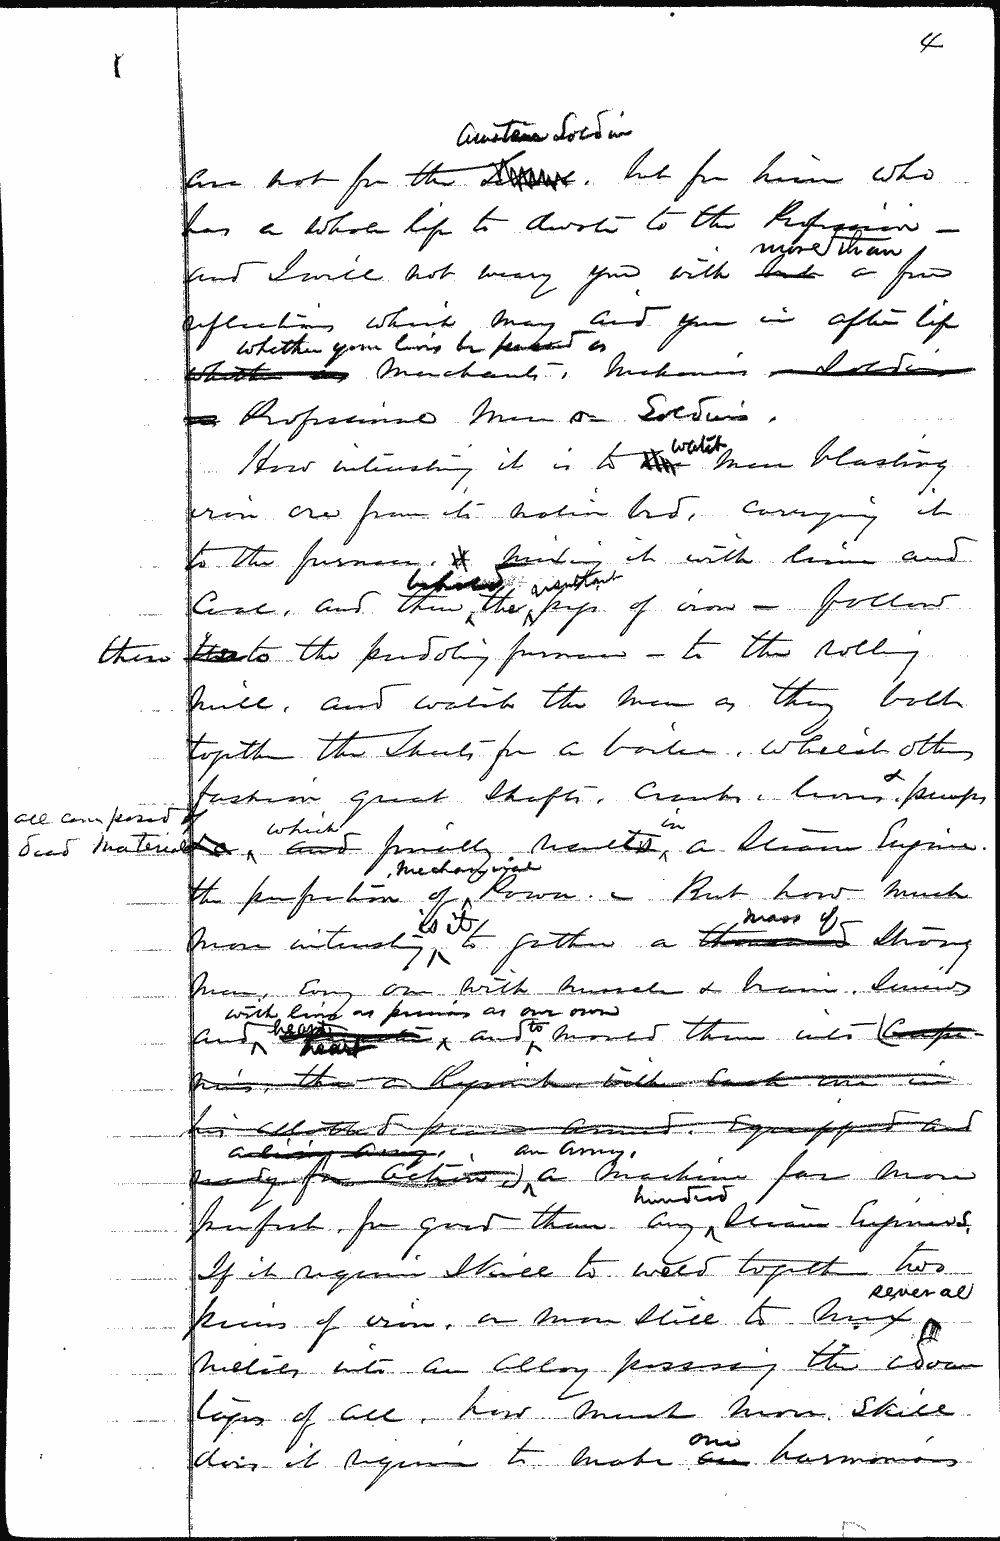 4
Amateur Soldier
are not for the but for him who
has a whole life to devote to the Profession —
more than
and I will not weary you with but a few
reflections which may aid you in after life
whether your lives be passed as
whether as Merchants, Mechanics Soldiers
Professional Men or Soldiers.
watch
How interesting it is to men blasting
iron ore from its native bed, carrying it
to the furnace, mixing it with lime and
behold resultant
Coal, and then the pigs of iron — follow
these to the pudling furnace — to the rolling
mill, and watch the men as they bolt
together the sheets for a boiler, whilst others
&
fashion great shafts, cranks, levers, pumps
all composed of
dead Material
which in
and finally results a Steam Engine.
mechanical
the perfection of Power. — But how much
is it mass of
more interesting to gather a thousand strong
men, every one with muscle & brain, sinews
with lives as precious as our own
heart to
and heart and mould them into (Compa-
nies, then a Regiment with each one in
his allotted place armed, Equipped and
a living army, an army,
ready for action,) a machine far more
hundred
perfect, for good than any Steam Engines.
If it requires skill to weld together two
several
pieces of iron, or more still to mix
metals into an alloy possessing the advan
tages of all, how much more skill
one
does it require to make an harmonious